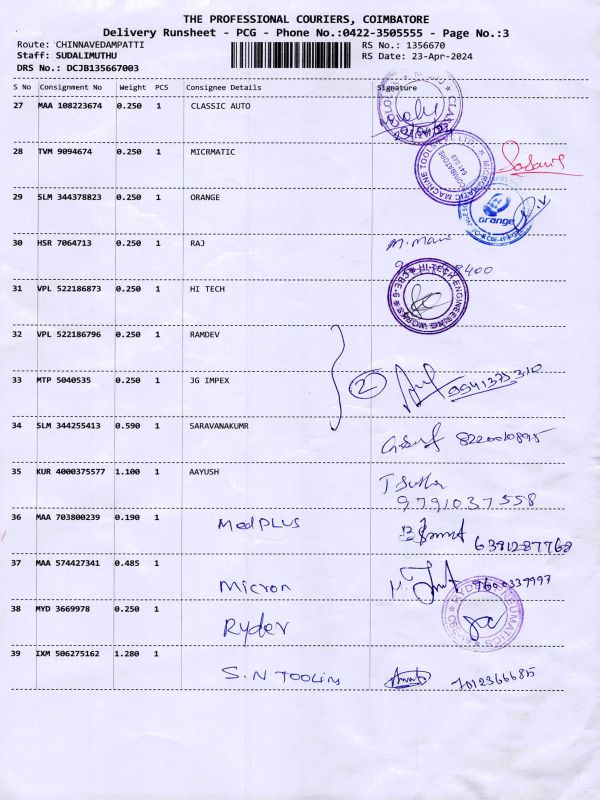 THE PROFESSIONAL COURIERS, COIMBATORE
Delivery Runsheet - PCG - Phone No.:0422-3505555 - Page No.:3
Route: CHINNAVEDAMPATTI RS No.: 1356670
Staff: SUDALIMUTHU RS Date: 23-Apr-2024
DRS No.: DCJB135667003
S No Consignment No Weight PCS Consignee Details Signature
27 MAA 108223674 0.250 1 CLASSIC AUTO
28 TVM 9094674 0.250 1 MICRMATIC
COIMBATORE
641 049
29 SLM 344378823 0.250 1 ORANGE
orange
30 HSR 7064713 0.250 1 RAJ M. Mani
31 VPL 522186873 0.250 1 HI TECH
HI-TECH ENGINEERING WORKS
32 VPL 522186796 0.250 1 RAMDEV
33 MTP 5040535 0.250 1 JG IMPEX 2
34 SLM 344255413 0.590 1 SARAVANAKUMR
35 KUR 4000375577 1.100 1 AAYUSH
9791037558
36 MAA 703800239 0.190 1 MedPLUS
6381287768
37 MAA 574427341 0.485 1 Micron 9600339997
38 MYD 3669978 0.250 1 Ryder
39 IXM 506275162 1.280 1 S.N TOOLING 7012366685